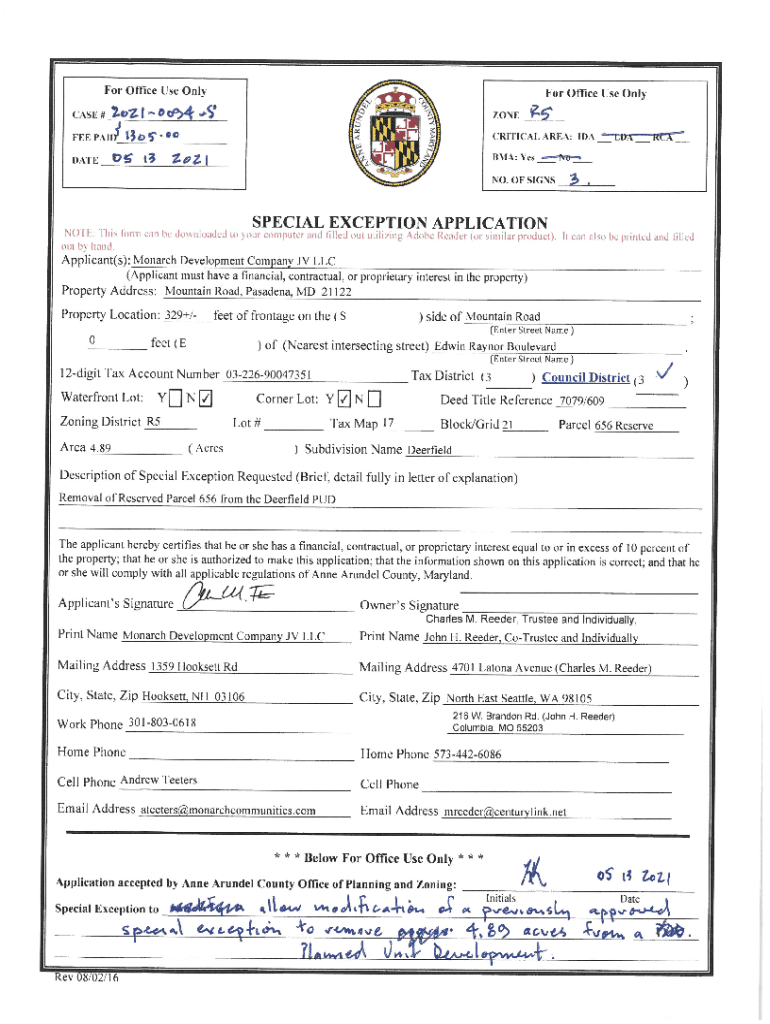 For Office Use Only
CASE # 2021-0034-S
FEE PAID $1305.00
DATE 05 13 2021
ANNE ARUNDEL COUNTY MARYLAND
For Office Use Only
ZONE R5
CRITICAL AREA: IDA LDA RCA
BMA: Yes No
NO. OF SIGNS 3
SPECIAL EXCEPTION APPLICATION
NOTE: This form can be downloaded to your computer and filled out utilizing Adobe Reader (or similar product). It can also be printed and filled
out by hand.
Applicant(s): Monarch Development Company JV LLC
(Applicant must have a financial, contractual, or proprietary interest in the property)
Property Address: Mountain Road, Pasadena, MD 21122
Property Location: 329+/- feet of frontage on the (S ) side of Mountain Road ;
(Enter Street Name )
0 feet (E ) of (Nearest intersecting street) Edwin Raynor Boulevard .
(Enter Street Name )
12-digit Tax Account Number 03-226-90047351 Tax District (3 ) Council District (3 ✓ )
Waterfront Lot: Y ☐ N ☑ Corner Lot: Y ☑ N ☐ Deed Title Reference 7079/609
Zoning District R5 Lot # Tax Map 17 Block/Grid 21 Parcel 656 Reserve
Area 4.89 (Acres ) Subdivision Name Deerfield
Description of Special Exception Requested (Brief, detail fully in letter of explanation)
Removal of Reserved Parcel 656 from the Deerfield PUD
The applicant hereby certifies that he or she has a financial, contractual, or proprietary interest equal to or in excess of 10 percent of
the property; that he or she is authorized to make this application; that the information shown on this application is correct; and that he
or she will comply with all applicable regulations of Anne Arundel County, Maryland.
Applicant's Signature Owner's Signature
Charles M. Reeder, Trustee and Individually,
Print Name Monarch Development Company JV LLC Print Name John H. Reeder, Co-Trustee and Individually
Mailing Address 1359 Hooksett Rd Mailing Address 4701 Latona Avenue (Charles M. Reeder)
City, State, Zip Hooksett, NH 03106 City, State, Zip North East Seattle, WA 98105
216 W. Brandon Rd. (John H. Reeder)
Work Phone 301-803-0618 Columbia MO 65203
Home Phone Home Phone 573-442-6086
Cell Phone Andrew Teeters Cell Phone
Email Address ateeters@monarchcommunities.com Email Address mreeder@centurylink.net
* * * Below For Office Use Only * * *
Application accepted by Anne Arundel County Office of Planning and Zoning: 05 13 2021
Initials Date
Special Exception to allow modification of a previously approved
special exception to remove 4.89 acres from a
Planned Unit Development.
Rev 08/02/16